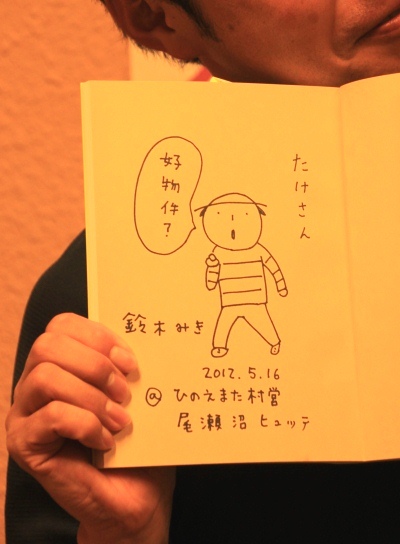 たけさん
好物件？
鈴木みき
2012.5.16
@ ひのえまた村営
尾瀬沼ヒュッテ